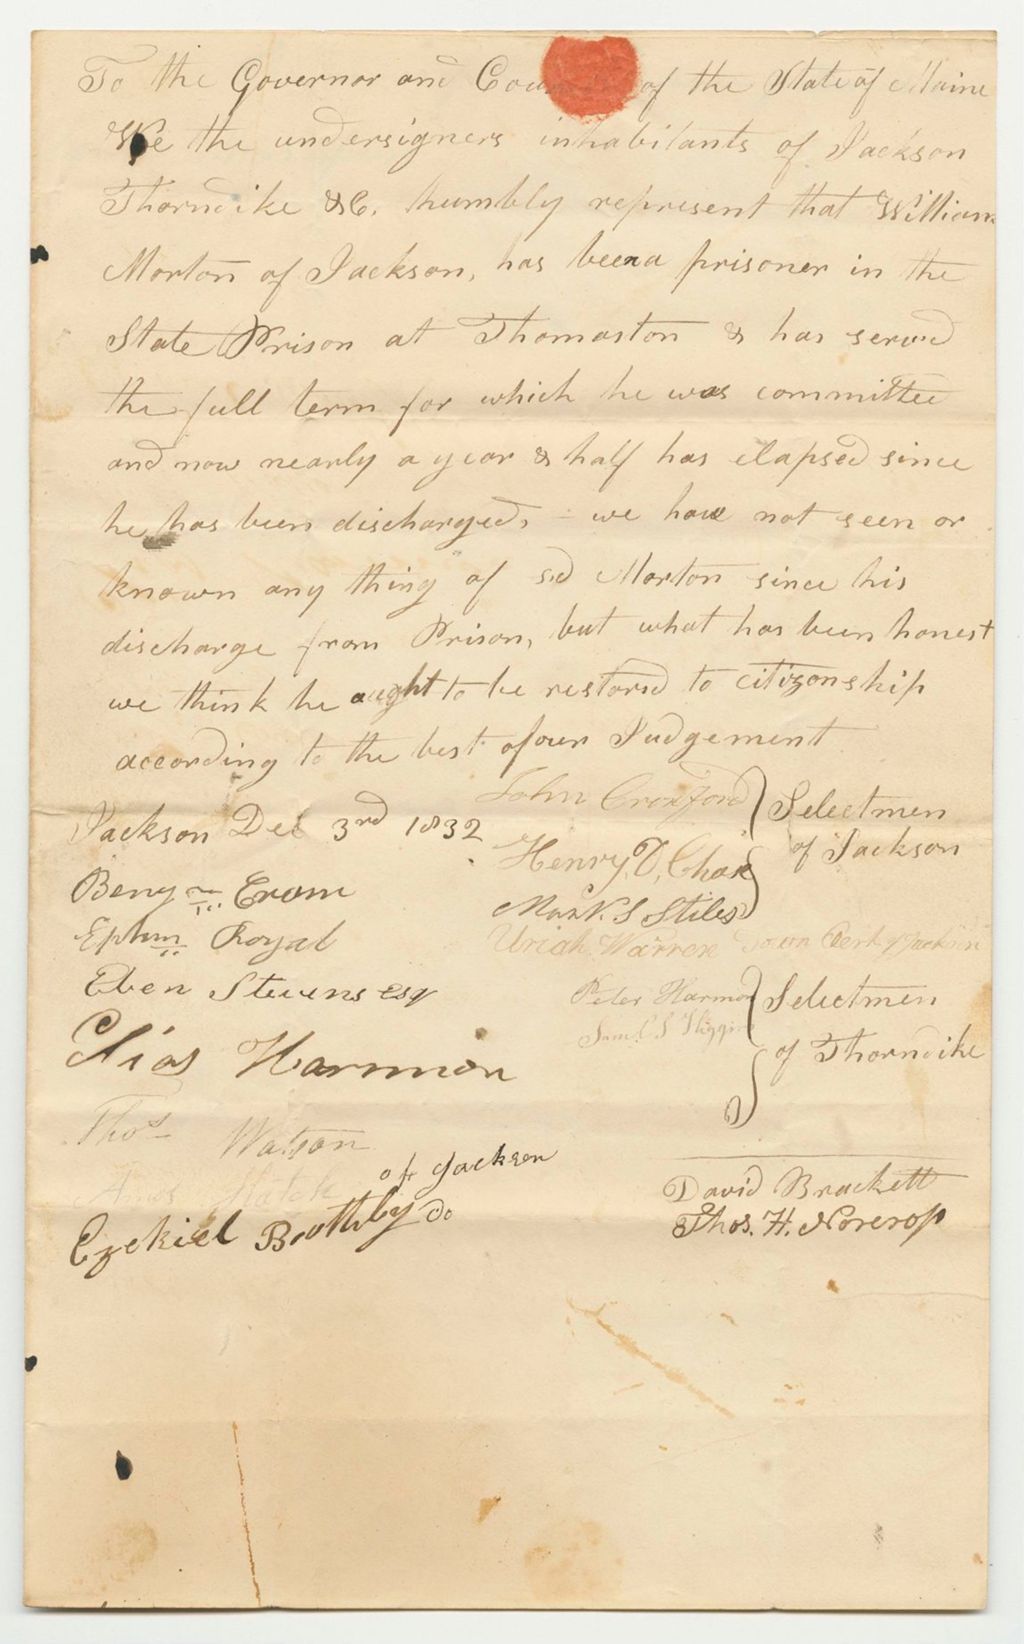 To the Governor and Cou of the State of Maine
We the undersigners inhabitants of Jackson
Thorndike &C. humbly represent that William
Morton of Jackson, has been a prisoner in the
State Prison at Thomaston & has served
the full term for which he was committee
and now nearly a year & half has elapsed since
he has been discharged, - we have not seen or
known any thing of sd Morton since his
discharge from Prison, but what has been honest
we think he aught to be restored to citizenship
according to the best of our Judgement
Jackson Dec 3rd 1832
John Croxford
Henry D, Chase
Mark S Stiles
Selectmen
of Jackson
Uriah Warren Town Clerk of Jackson
Peter Harmon
Saml S Higgins
Selectmen
of Thorndike
David Brackett
Thos. H. Norcross
Benjn
Ephm Royal
Eben Stevens esq
Elias Harmon
Thos Watson
Amos Hatch of Jackson
Ezekiel Brothby do